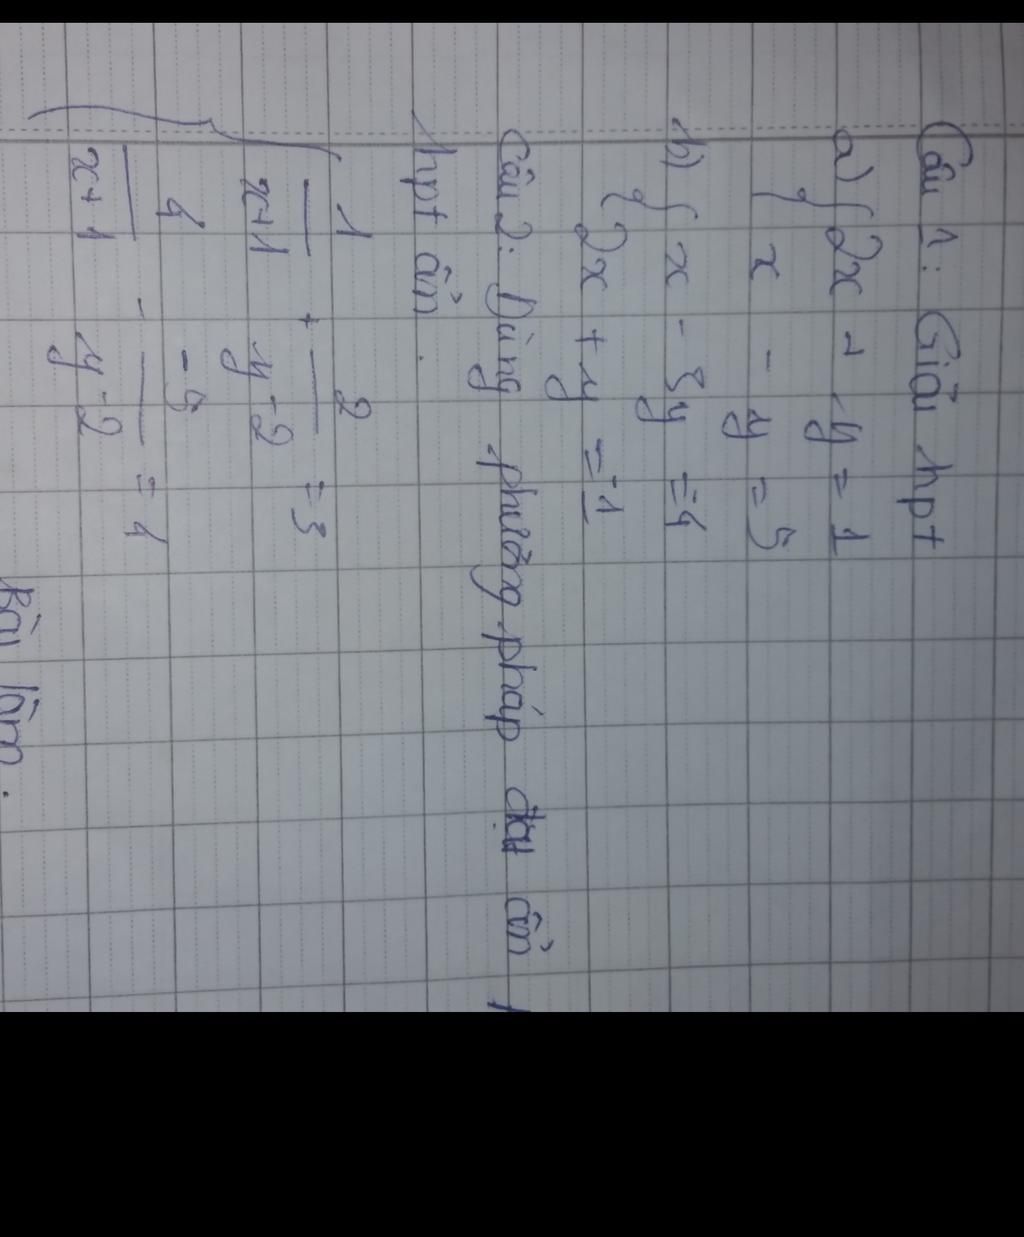 Câu 1: Giải hpt
a) { 2x + y = 1
x - y = 5
b) { x - 3y = 4
2x + y = -1
Câu 2: Dùng phương pháp đặt ẩn
hpt ẩn.
{ 1/(x+1) + 2/(y-2) = 3
4/(x+1) - -5/(y-2) = 1
Bài làm.